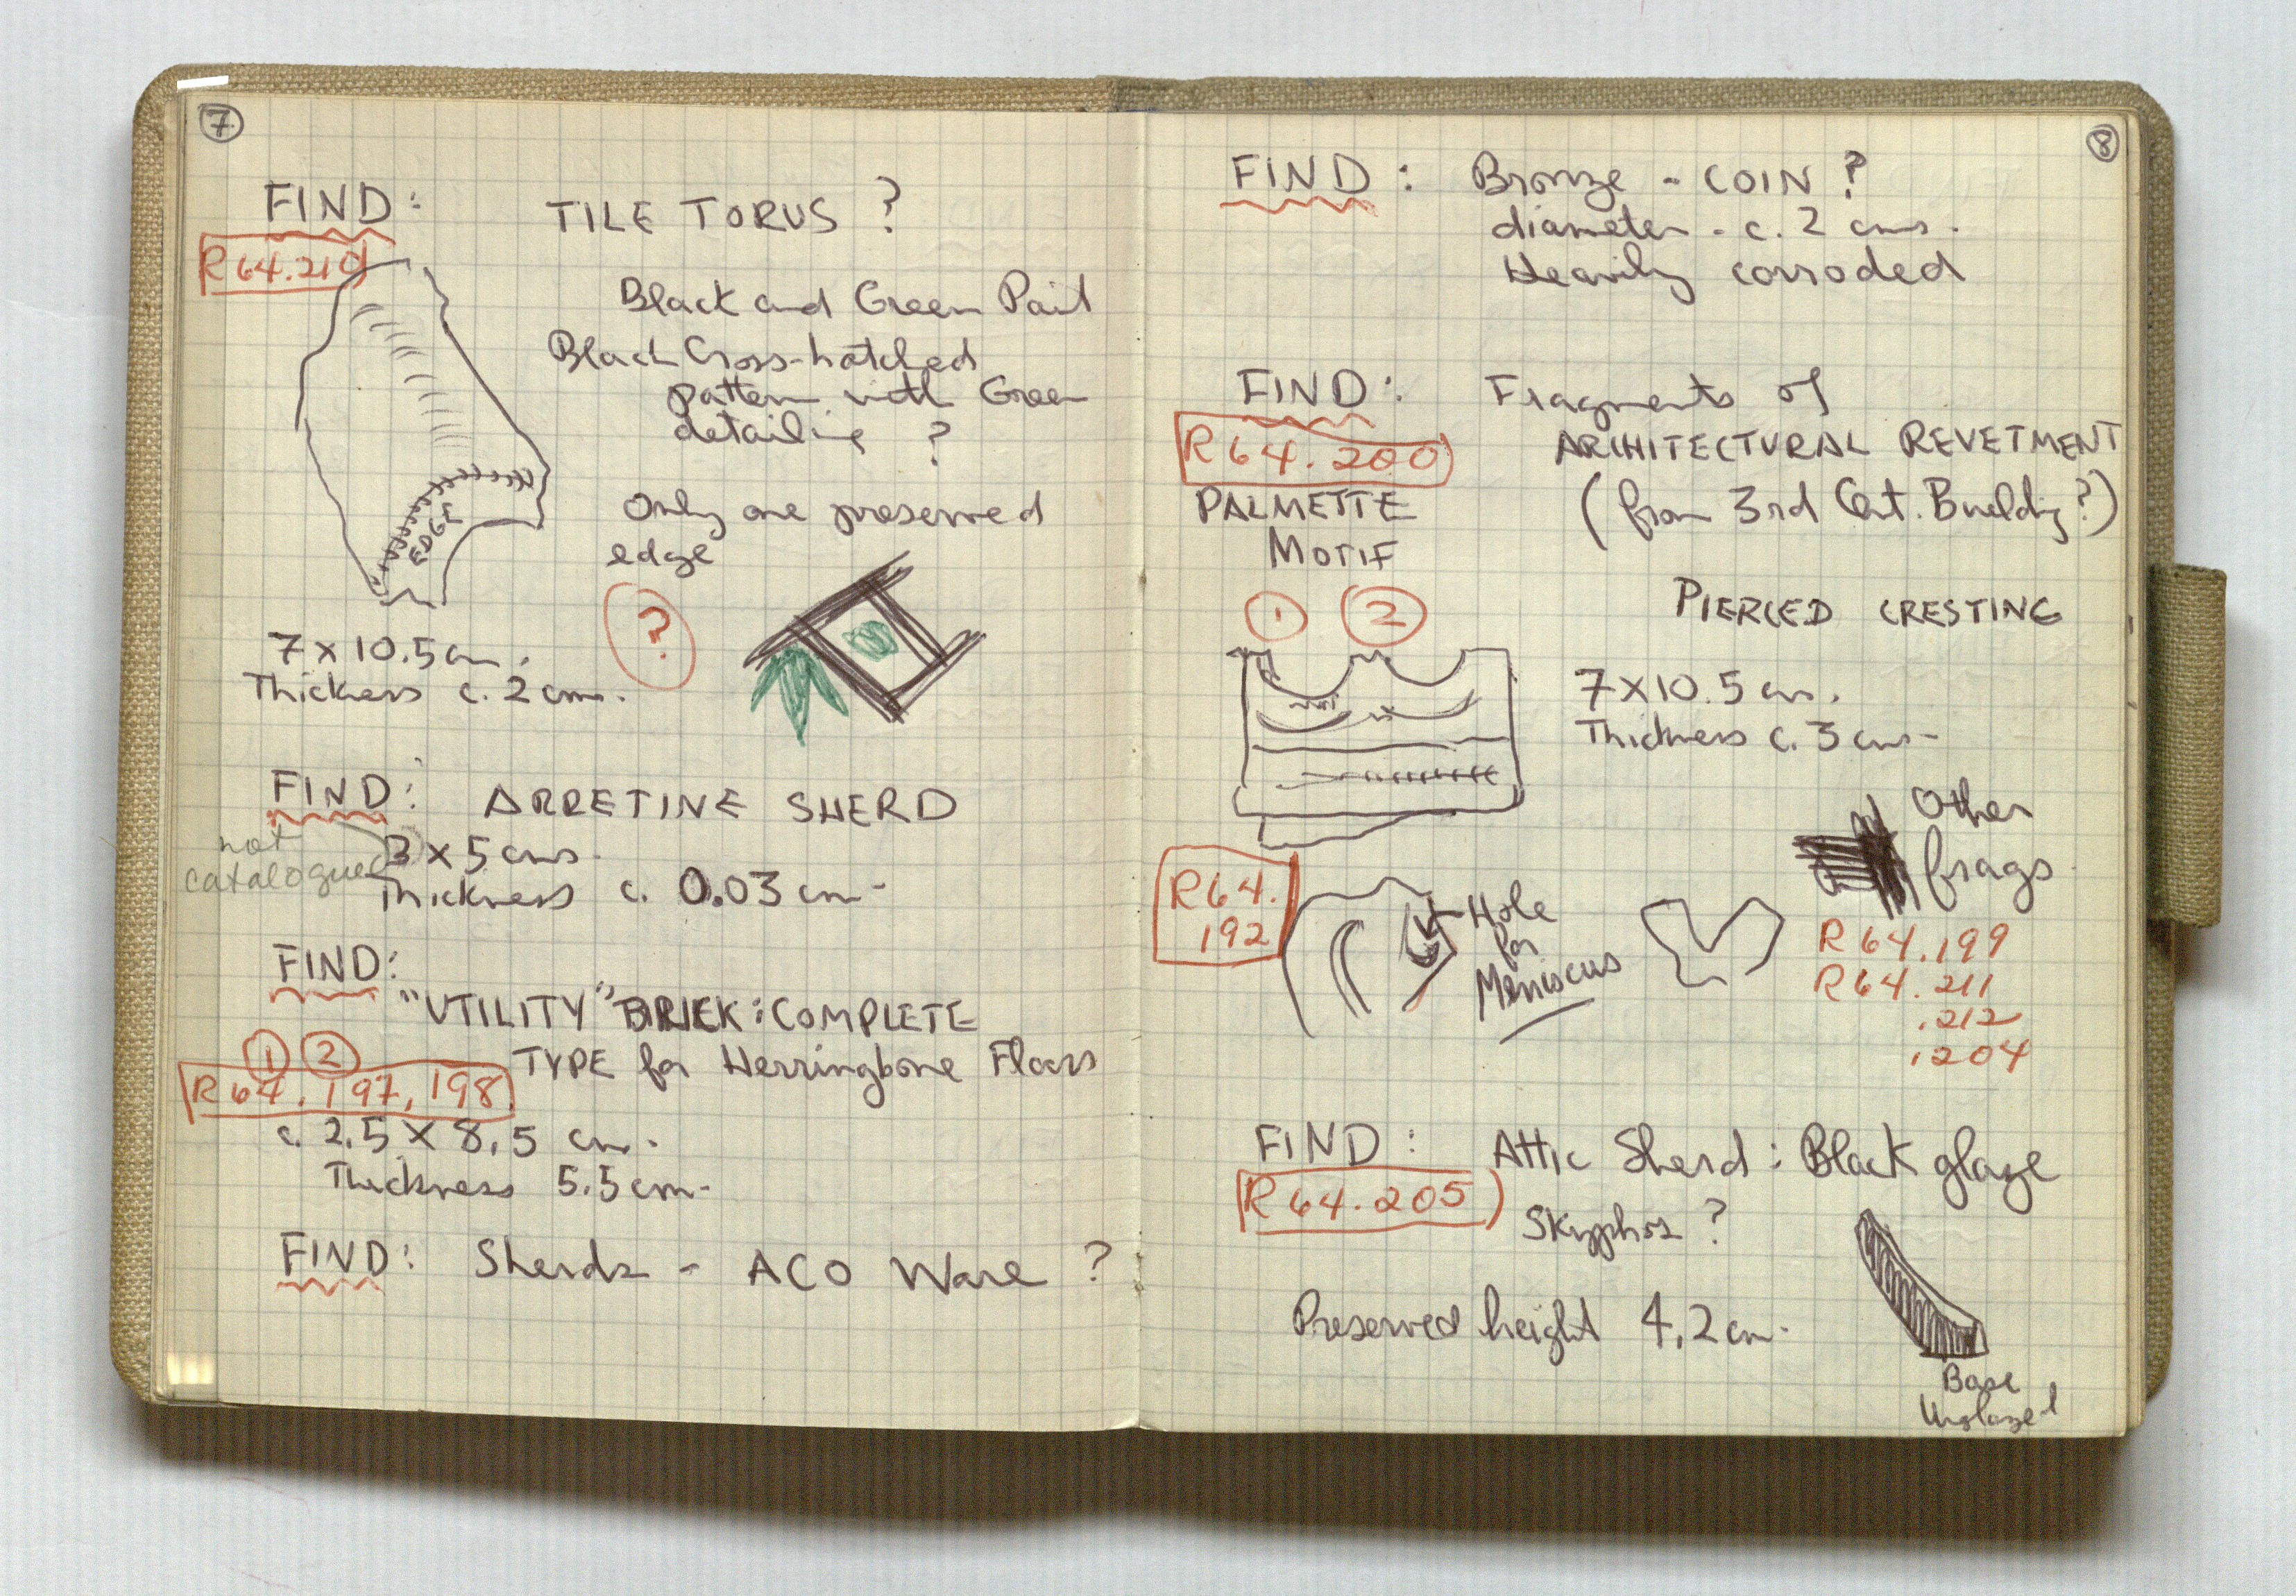 7
FIND:
TILE TORUS ?
R 64.210
Black and Green Pait
Black Cross-hatched
pattern with Green
detailing ?
EDGE
Only one preserved
edge
?
7 x 10.5 cm.
Thickness c. 2 cms.
FIND:
ARRETINE SHERD
not
catalogued
3 x 5 cms.
Thickness c. 0.03 cm-
FIND:
"UTILITY" BRICK: COMPLETE
1 2
TYPE for Herringbone Floors
R 64. 197, 198
c. 2.5 x 8.5 cm.
Thickness 5.5 cm-
FIND: Sherds - ACO Ware ?
8
FIND: Bronze - COIN ?
diameter - c. 2 cms.
Heavily corroded
FIND: Fragments of
R 64. 200
ARCHITECTURAL REVETMENT
(from 3rd Cent. Building?)
PALMETTE
MOTIF
1 2
PIERCED CRESTING
7 X 10.5 cm.
Thickness c. 3 cms-
Other
frags.
R 64.
192
Hole
for
Meniscus
R 64.199
R 64.211
.212
.204
FIND: Attic Sherd: Black glaze
R 64.205
Skyphos ?
Preserved height 4.2 cm.
Base
Unglazed